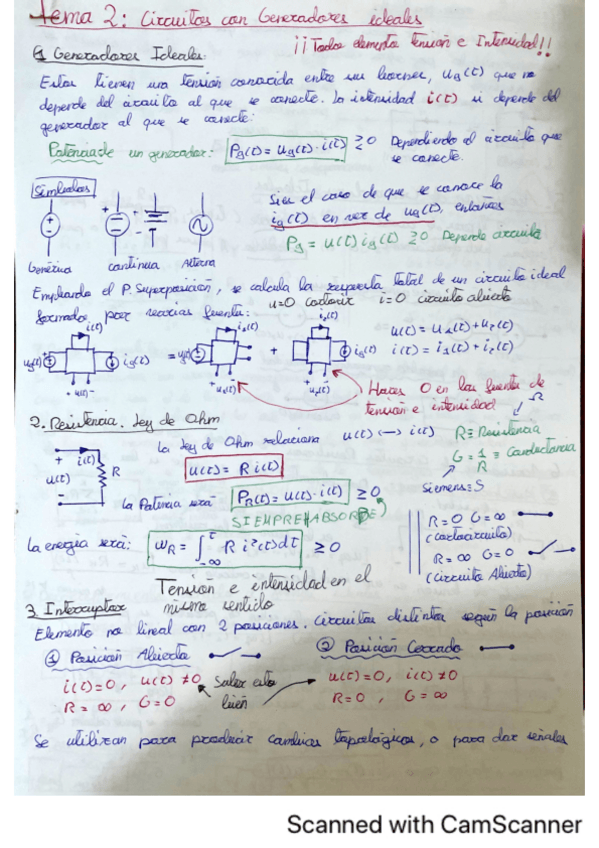 Tema 2: Circuitos con Generadores ideales
¡¡Todos elementos tensión e Intensidad!!
1. Generadores Ideales:
Estos tienen una tensión conocida entre sus bornes, ug(t) que no
depende del circuito al que se conecte. La intensidad i(t) si depende del
generador al que se conecte:
Potencia de un generador: Pg(t) = ug(t) · i(t) ≷ 0 Dependiendo el circuito que
se conecte.
Símbolos
Si es el caso de que se conoce la
ig(t) en vez de ug(t), entonces
Pg = u(t) ig(t) ≷ 0 Depende circuito
+ - + - + -
Genérica continua Alterna
Empleando el P. Superposición, se calcula la respuesta total de un circuito ideal
formado por varias fuentes: u=0 cortocir i=0 circuito abierto
i(t) i1(t) i2(t)
ug(t) ig(t) = ug(t) + ig(t)
+ u(t) - + u1(t) - + u2(t) -
u(t) = u1(t) + u2(t)
i(t) = i1(t) + i2(t)
Haces 0 en las fuentes de
tensión e intensidad
2. Resistencia. Ley de Ohm
+ i(t)
u(t) R
-
La Ley de Ohm relaciona u(t) <-> i(t)
u(t) = R i(t)
Ω
R ≡ Resistencia
G = 1/R ≡ Conductancia
Siemens ≡ S
La Potencia será PR(t) = u(t) · i(t) ≥ 0
SIEMPRE ABSORBE
R = 0 G = ∞
(cortocircuito)
R = ∞ G = 0
(Circuito Abierto)
La energía será: WR = ∫ t -∞ R i²(t) dt ≥ 0
Tensión e intensidad en el
mismo sentido
3. Interruptor
Elemento no lineal con 2 posiciones. Circuitos distintos según la posición
① Posición Abierta ② Posición Cerrado
i(t) = 0, u(t) ≠ 0 Saber esto u(t) = 0, i(t) ≠ 0
R = ∞, G = 0 bien R = 0, G = ∞
Se utilizan para producir cambios topológicos, o para dar señales
Scanned with CamScanner